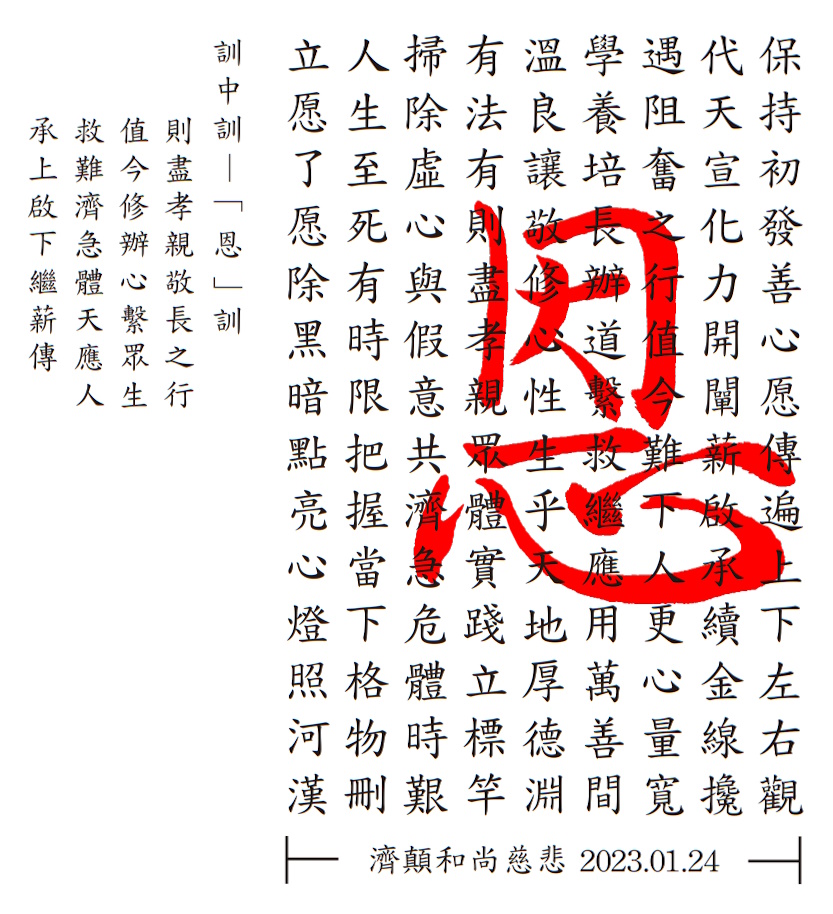 保持初發善心愿傳遍上下左右觀
代天宣化力開闡薪啟承續金線攙
遇阻奮之行值今難下人更心量寬
學養培長辦道繫救繼應用萬善間
溫良讓敬修心性生乎天地厚德淵
有法有則盡孝親眾體實踐立標竿
掃除虛心與假意共濟急危體時艱
人生至死有時限把握當下格物刪
立愿了愿除黑暗點亮心燈照河漢
恩
訓中訓—「恩」訓
則盡孝親敬長之行
值今修辦心繫眾生
救難濟急體天應人
承上啟下繼薪傳
濟顛和尚慈悲 2023.01.24